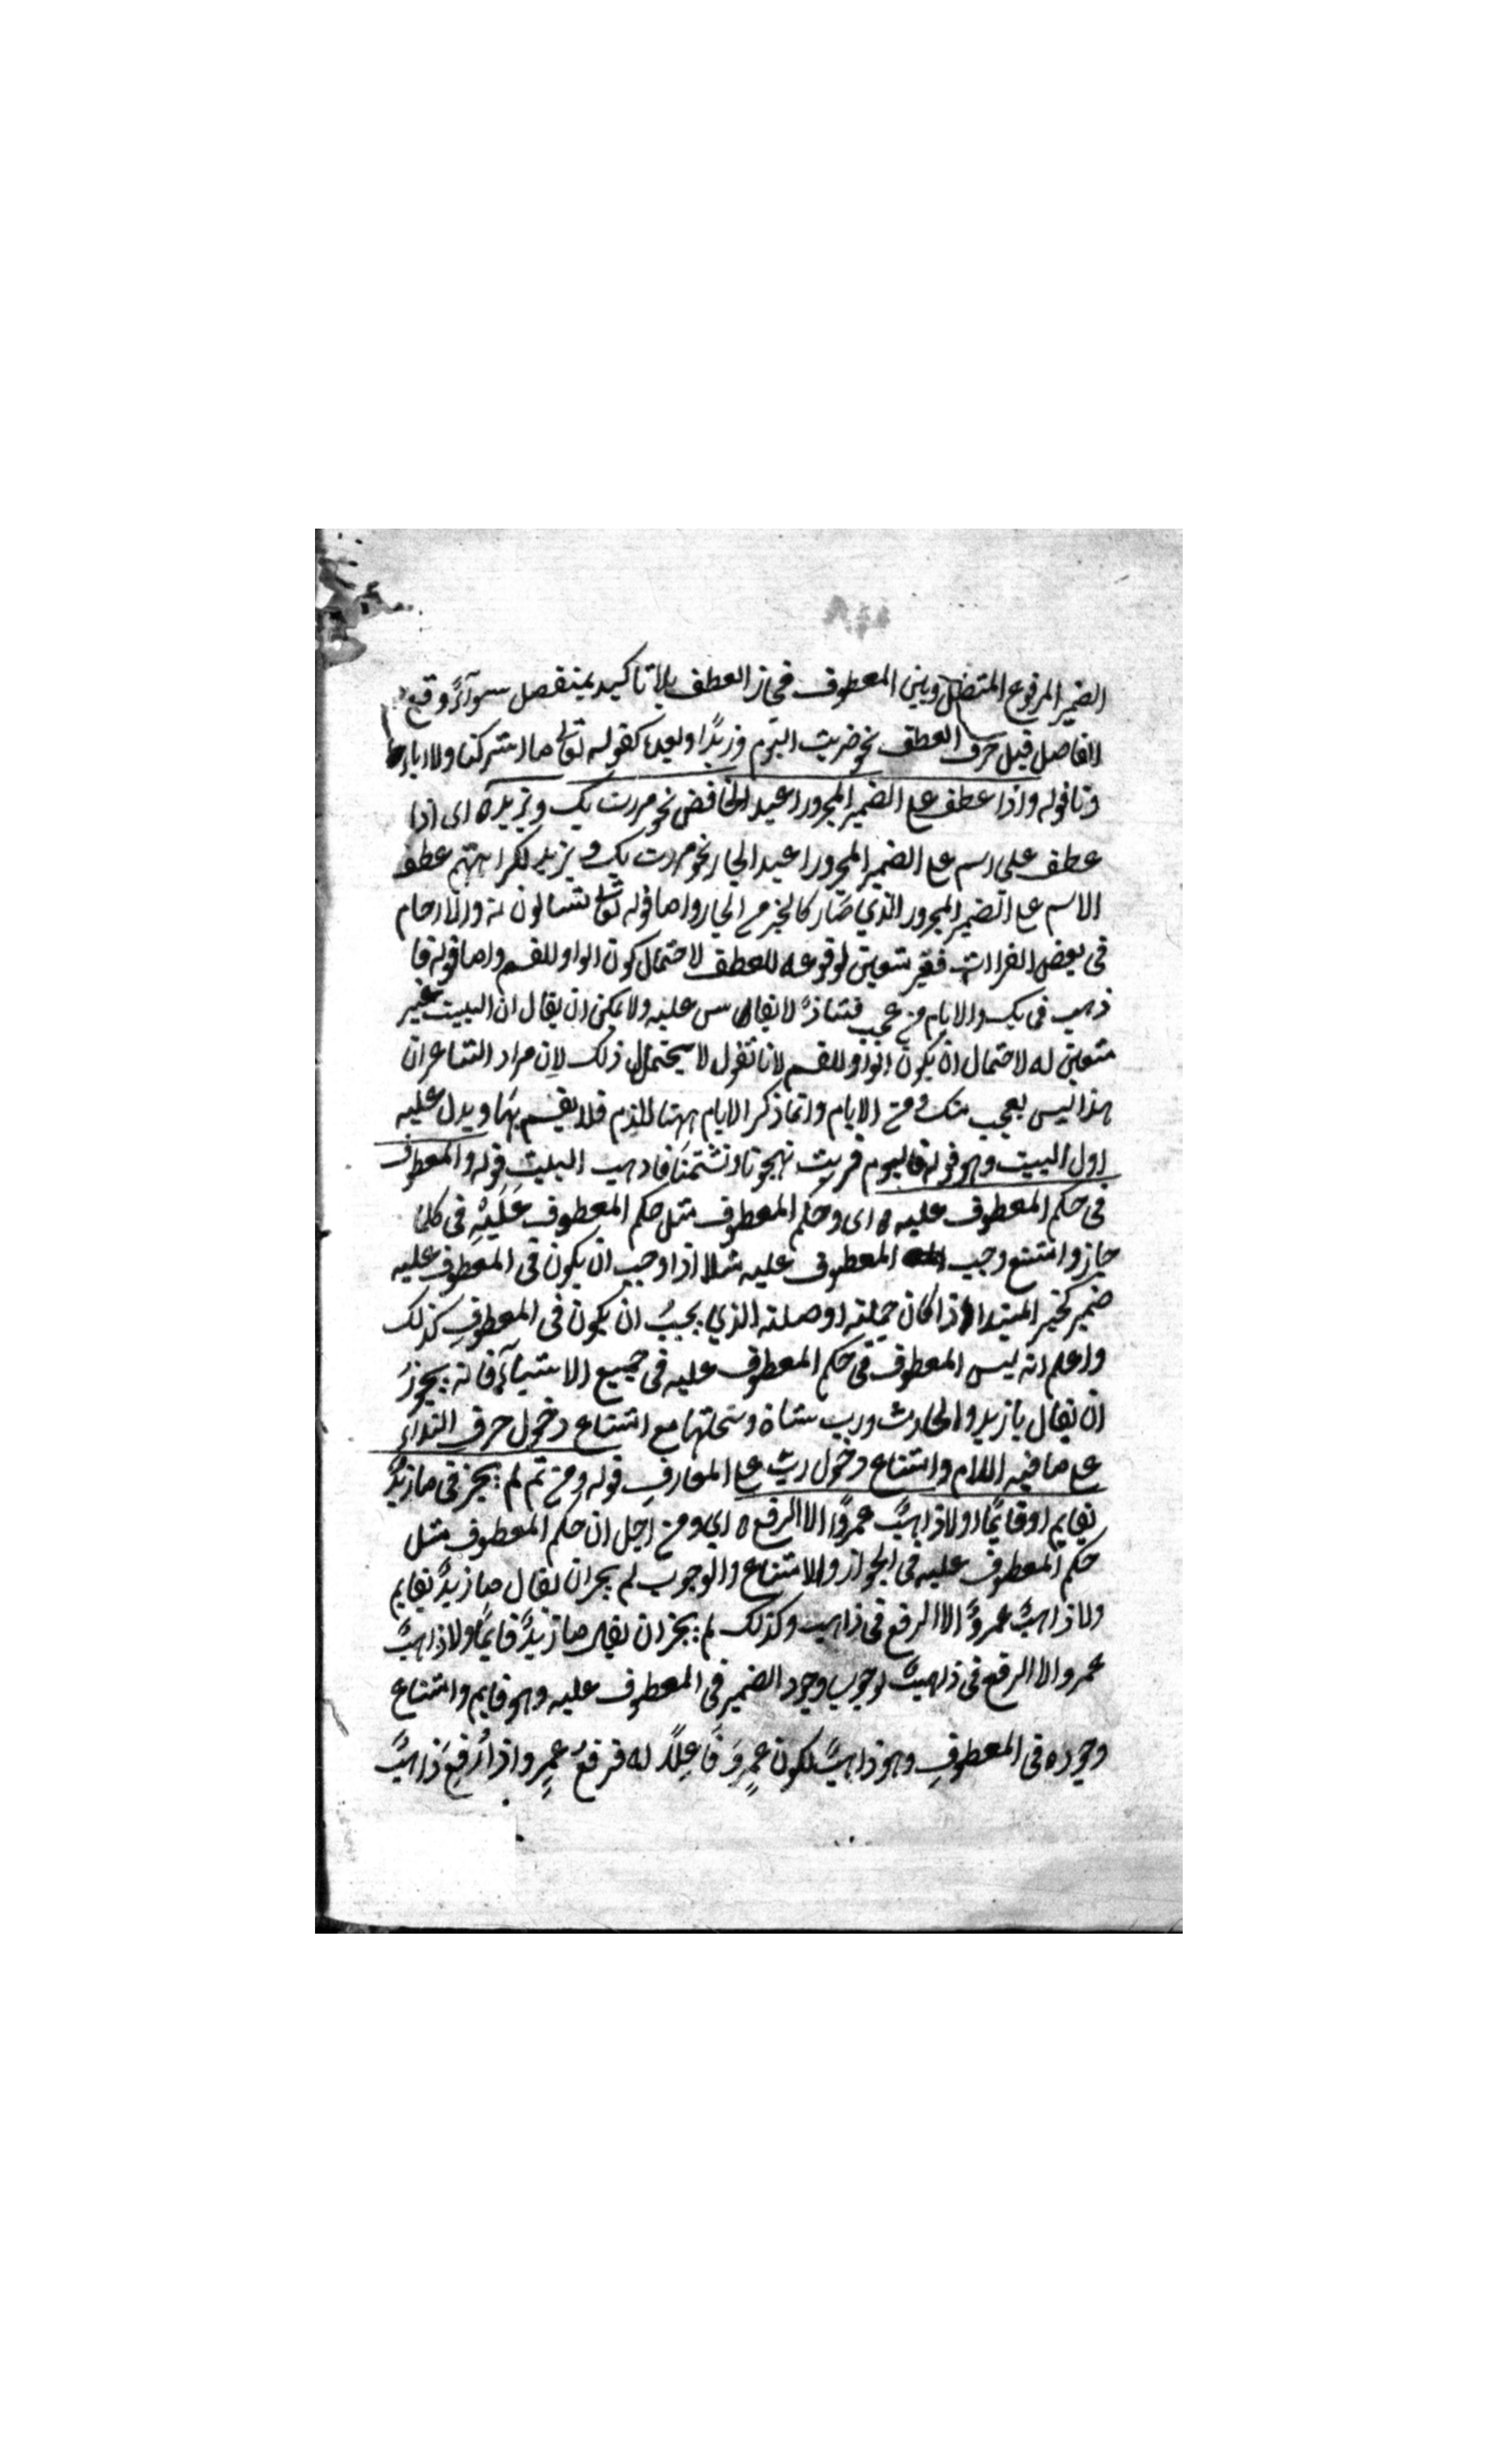 الضمير المرفوع المتصل وبين المعطوف فجاز العطف بلا تاكيد بمنفصل سوآءً وقع
الفاصل قبل حرف العطف نحو ضربت اليوم وزيدًا او بعده كقوله تعالى ما اشركنا ولا اباء
ونا قوله واذا عطف على الضمير المجرور اعيد الخافض نحو مررت بك وبزيد ه اى اذا
عطف على اسم على الضمير المجرور اعيد الجار نحو مررت بك وبزيد لكراهتهم عطف
الاسم على الضمير المجرور الذي صار كالجزء من الجار واما قوله تعالى تسالون به والارحام
فى بعض القراات فغير متعين لوقوعه للعطف لاحتمال كون الواو للقسم واما قوله فا
ذهب فى بك والايام من عجب فشاذ لا يقاس عليه ولا يمكن ان يقال ان البيت غير
متعين له لاحتمال ان يكون الواو للقسم لانا نقول لا يحتمل ذلك لان مراد الشاعر ان
هذا ليس بعجب منك ومن الايام وانما ذكر الايام ههنا للذم فلا يقسم بها ويدل عليه
اول البيت وهو قوله فاليوم قربت تهجونا وتشتمنا فاذهب البيت قوله والمعطوف
فى حكم المعطوف عليه ه اى وحكم المعطوف مثل حكم المعطوف عَلَيْهِ فى كلما
جاز وامتنع وجب المعطوف عليه مثلا اذا وجب ان يكون فى المعطوف عليه
ضمير كخبر المبتدا اذا كان جملة او صلة الذي يجبُ ان يكون فى المعطوف كذلك
واعلم انه ليس المعطوف فى حكم المعطوف عليه فى جميع الاشيآء فانه يجوز
ان يقال يا زيد والحارث ورب شاة وسخلتها مع امتناع دخول حرف الندآء
على ما فيه اللام وامتناع دخول رب على المعارف قوله ومن ثم لم يجز فى ما زيدٌ
بقايم او قايمًا ولا ذاهبٌ عمروٌ الا الرفع ه اي ومن اجل ان حكم المعطوف مثل
حكم المعطوف عليه فى الجواز والامتناع والوجوب لم يجز ان يقال ما زيدٌ بقايم
ولا ذاهبٌ عمروٌ الا الرفع فى ذاهب وكذلك لم يجز ان يقال ما زيدٌ قايمًا ولا ذاهبٌ
عمرو الا الرفع فى ذاهبٌ لوجوب وجود الضمير فى المعطوف عليه وهو قايم وامتناع
وجوده فى المعطوفِ وهو ذاهبٌ لكون عمرٍو فَاعِلًا له فرفعُ عمرٍو اذا رُفِعَ ذاهبٌ